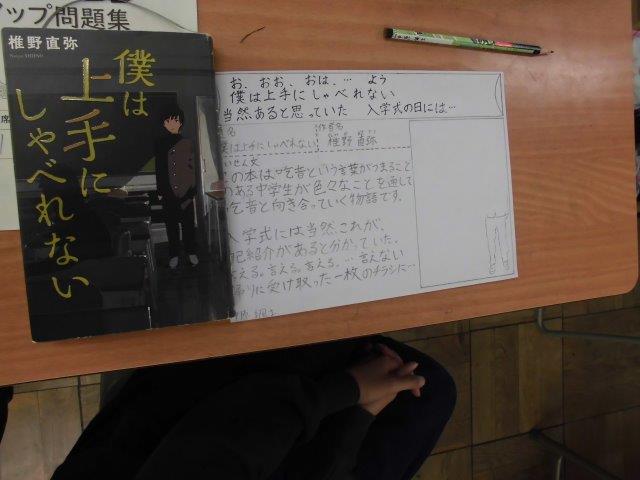 ップ問題集
椎野直弥
僕は
上手に
しゃべれない
お、おお、おは、… よう
僕は上手にしゃべれない
当然あると思っていた 入学式の日には…
名
作者名
僕は上手にしゃべれない
椎野 直弥
いせん文
の本は吃音という言葉がつまること
のある中学生が色々なことを通して
吃音と向き合っていく物語です。
入学式には当然これが、
己紹介があると分かっていた。
言える。言える。言える。… 言えない
帰りに受け取った一枚のチラシに…